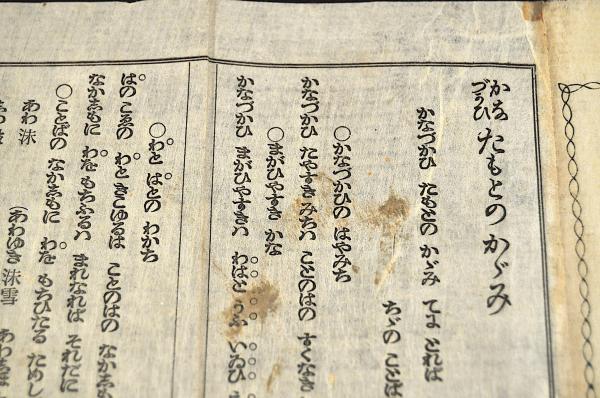 かなづかひ たもとの かゞみ
かなづかひ たもとの かゞみ てよ とれば
ちゞの ことば
○かなづかひの はやみち
かなづかひ たやすき みちハ ことのはの すくなき
○まがひやすき かな
かなづかひ まがひやすきハ わはと うふ いゐひ
○わと はとの わかち
はの こゑの わと きこゆるは ことのはの なかしも
なかしもに わを もちふるハ まれなれば それだに
○ことばの なかしもに わを もちひたる ためし
あわ 沫
(あわゆき 沫雪